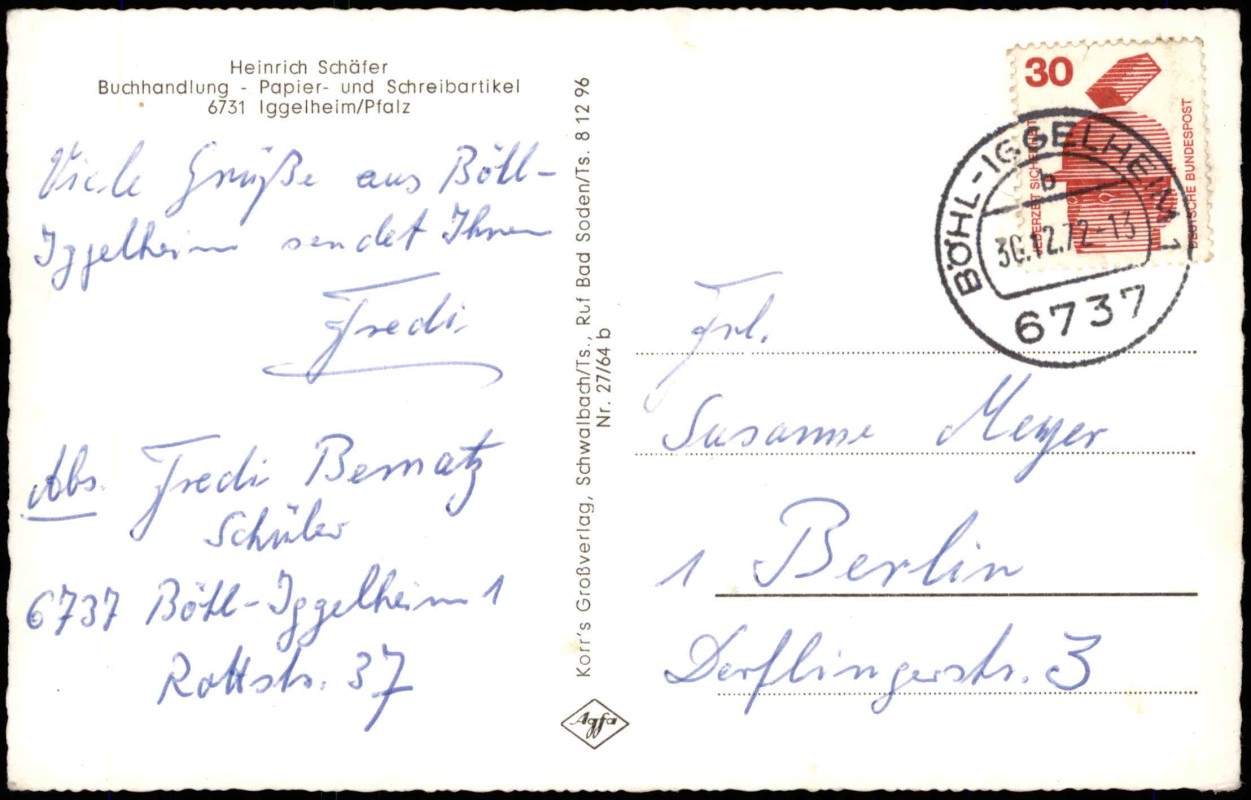 Heinrich Schäfer
Buchhandlung - Papier- und Schreibartikel
6731 Iggelheim/Pfalz
Viele Grüße aus Böhl-
Iggelheim sendet Ihnen
Fredi
Abs. Fredi Bernatz
Schüler
6737 Böhl-Iggelheim 1
Rottstr. 37
Korr's Großverlag, Schwalbach/Ts., Ruf Bad Soden/Ts. 8 12 96
Nr. 27/64 b
Agfa
30
JEDERZEIT SICHERHEIT
DEUTSCHE BUNDESPOST
BÖHL-IGGELHEIM 1
b
30.12.72-13
6737
Frl.
Susanne Meyer
1 Berlin
Derflingerstr. 3